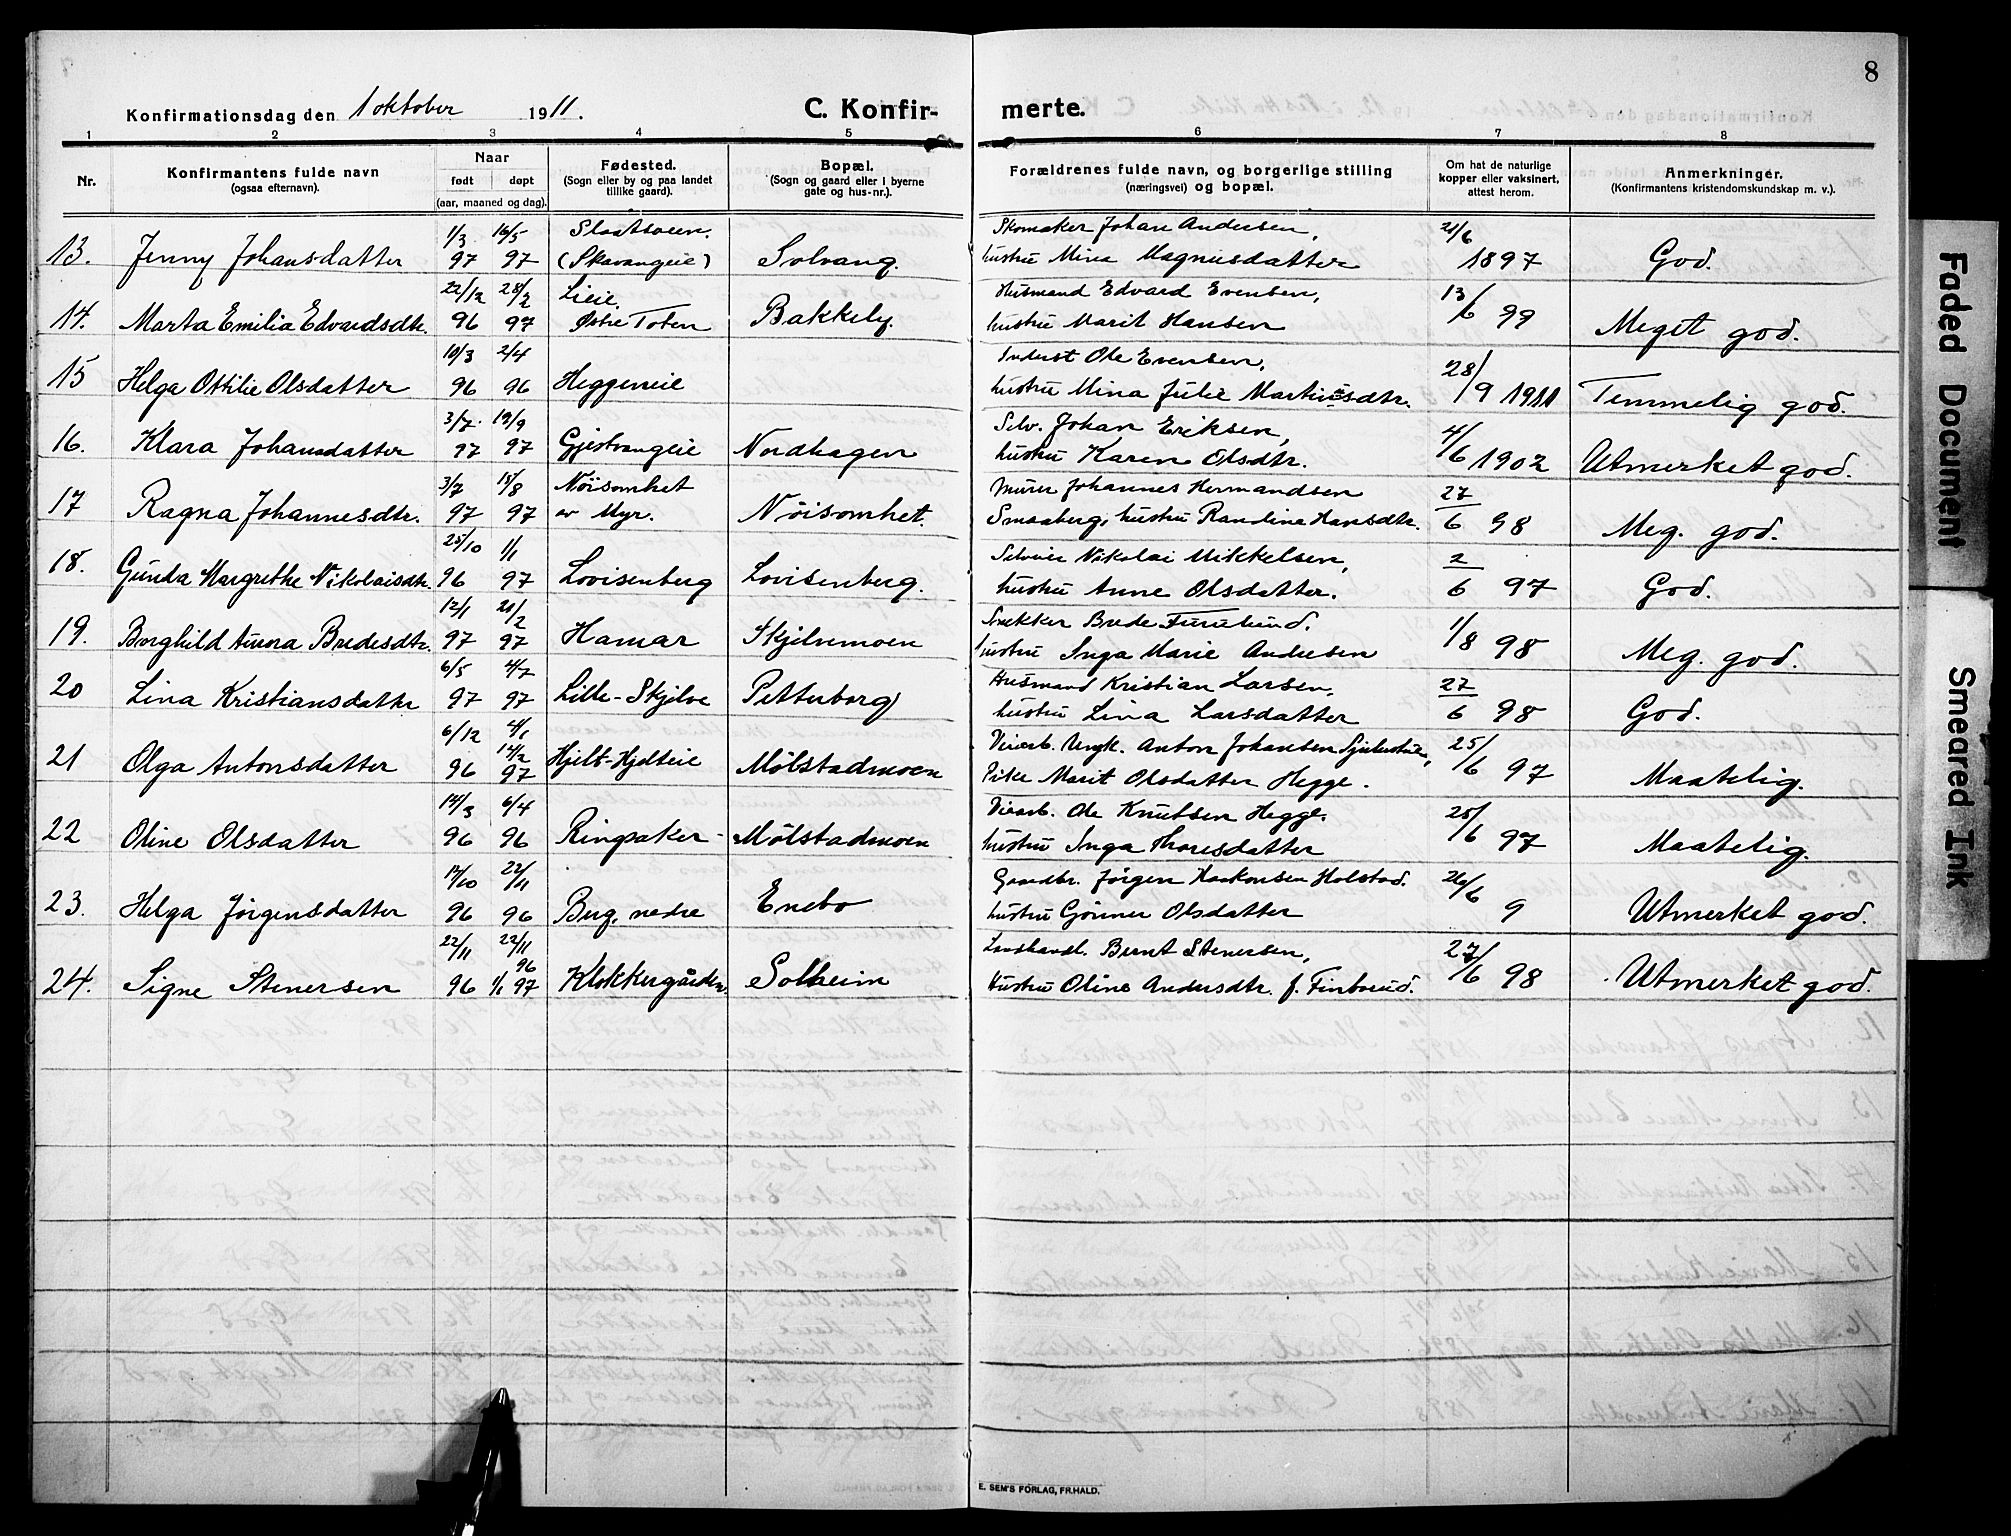 8
Konfirmationsdag den 1 oktober 1911.
C. Konfir-
merte.
1 2 3 4 5 6 7 8
Nr.
Konfirmantens fulde navn
(ogsaa efternavn).
Naar
født døpt
(aar, maaned og dag).
Fødested.
(Sogn eller by og paa landet
tillike gaard).
Bopæl.
(Sogn og gaard eller i byerne
gate og hus-nr.).
Forældrenes fulde navn, og borgerlige stilling
(næringsvei) og bopæl.
Om hat de naturlige
kopper eller vaksinert,
attest herom.
Anmerkninger.
(Konfirmantens kristendomskundskap m. v.).
1/3 16/5 Slaatsveen. Skomaker Johan Andersen, 21/6
13. Jenny Johansdatter 97 97 (Skavangeie) Solvang. hustru Mina Magnusdatter 1897 God.
22/12 28/2 Lieie, Husmand Edvard Evensen, 13
14. Marta Emilia Edvardsdtr. 96 97 Østre Toten Bakkely. hustru Marit Hansen /6 99 Meget god.
10/3 2/4 Inderst Ole Evensen, 28
15 Helga Ottilie Olsdatter 96 96 Heggeneie hustru Mina Julie Martinsdtr. /9 1911 Temmelig god.
3/7 19/9 Selv. Johan Eriksen, 4
16. Klara Johansdatter 97 97 Gjestvangeie Nordhagen hustru Karen Olsdtr. /6 1902 Utmerket god.
3/7 15/8 Nöisomhet Murer Johannes Hermandsen 27
17 Ragna Johannesdtr. 97 97 av Myr. Nöisomhet. Smaaberg, hustru Randine Hansdtr. 6 98 Meg. god.
25/10 1/1 Selveier Nikolai Mikkelsen, 2
18. Gunda Margrethe Nikolaisdtr. 96 97 Lovisenberg Lovisenberg. hustru Anne Olsdatter. 6 97 God.
12/1 21/2 Snekker Brede Furulund. 1
19. Borghild Aurora Bredesdtr. 97 97 Hamar Skjelvemoen hustru Inga Marie Andersen /8 98 Meg. god.
6/5 4/7 Husmand Kristian Larsen, 27
20 Lina Kristiansdatter 97 97 Lille-Skjelve Petterborg hustru Lina Larsdatter 6 98 God.
6/12 4/1 Anton Johansen 25
21 Olga Antonsdatter 96 14/2 97 Hjelt-Hjelteie Mölstadmoen Pike Marit Olsdatter Hegge. /6 97 Maatelig.
14/3 6/4 Ole Knutsen Hegge. 25
22 Oline Olsdatter 96 96 Ringsaker - Mölstadmoen hustru Inga Thoresdatter /6 97 Maatelig.
14/10 22/11 Gaardbr. Jörgen Haakonsen Holstad. 26/6
23. Helga Jörgensdatter 96 96 Berg, nedre Enebo hustru Gönner Olsdatter 9 Utmerket god.
22/11 22/11 96 Landhandl. Bernt Stenersen, 27
24. Signe Stenersen 96 1/1 97 Klokkergården. Solheim Hustru Oline Andersdtr. f. Finborud. /6 98 Utmerket god.
E. SEM'S FORLAG, FR.HALD.
Faded Document
Smeared Ink